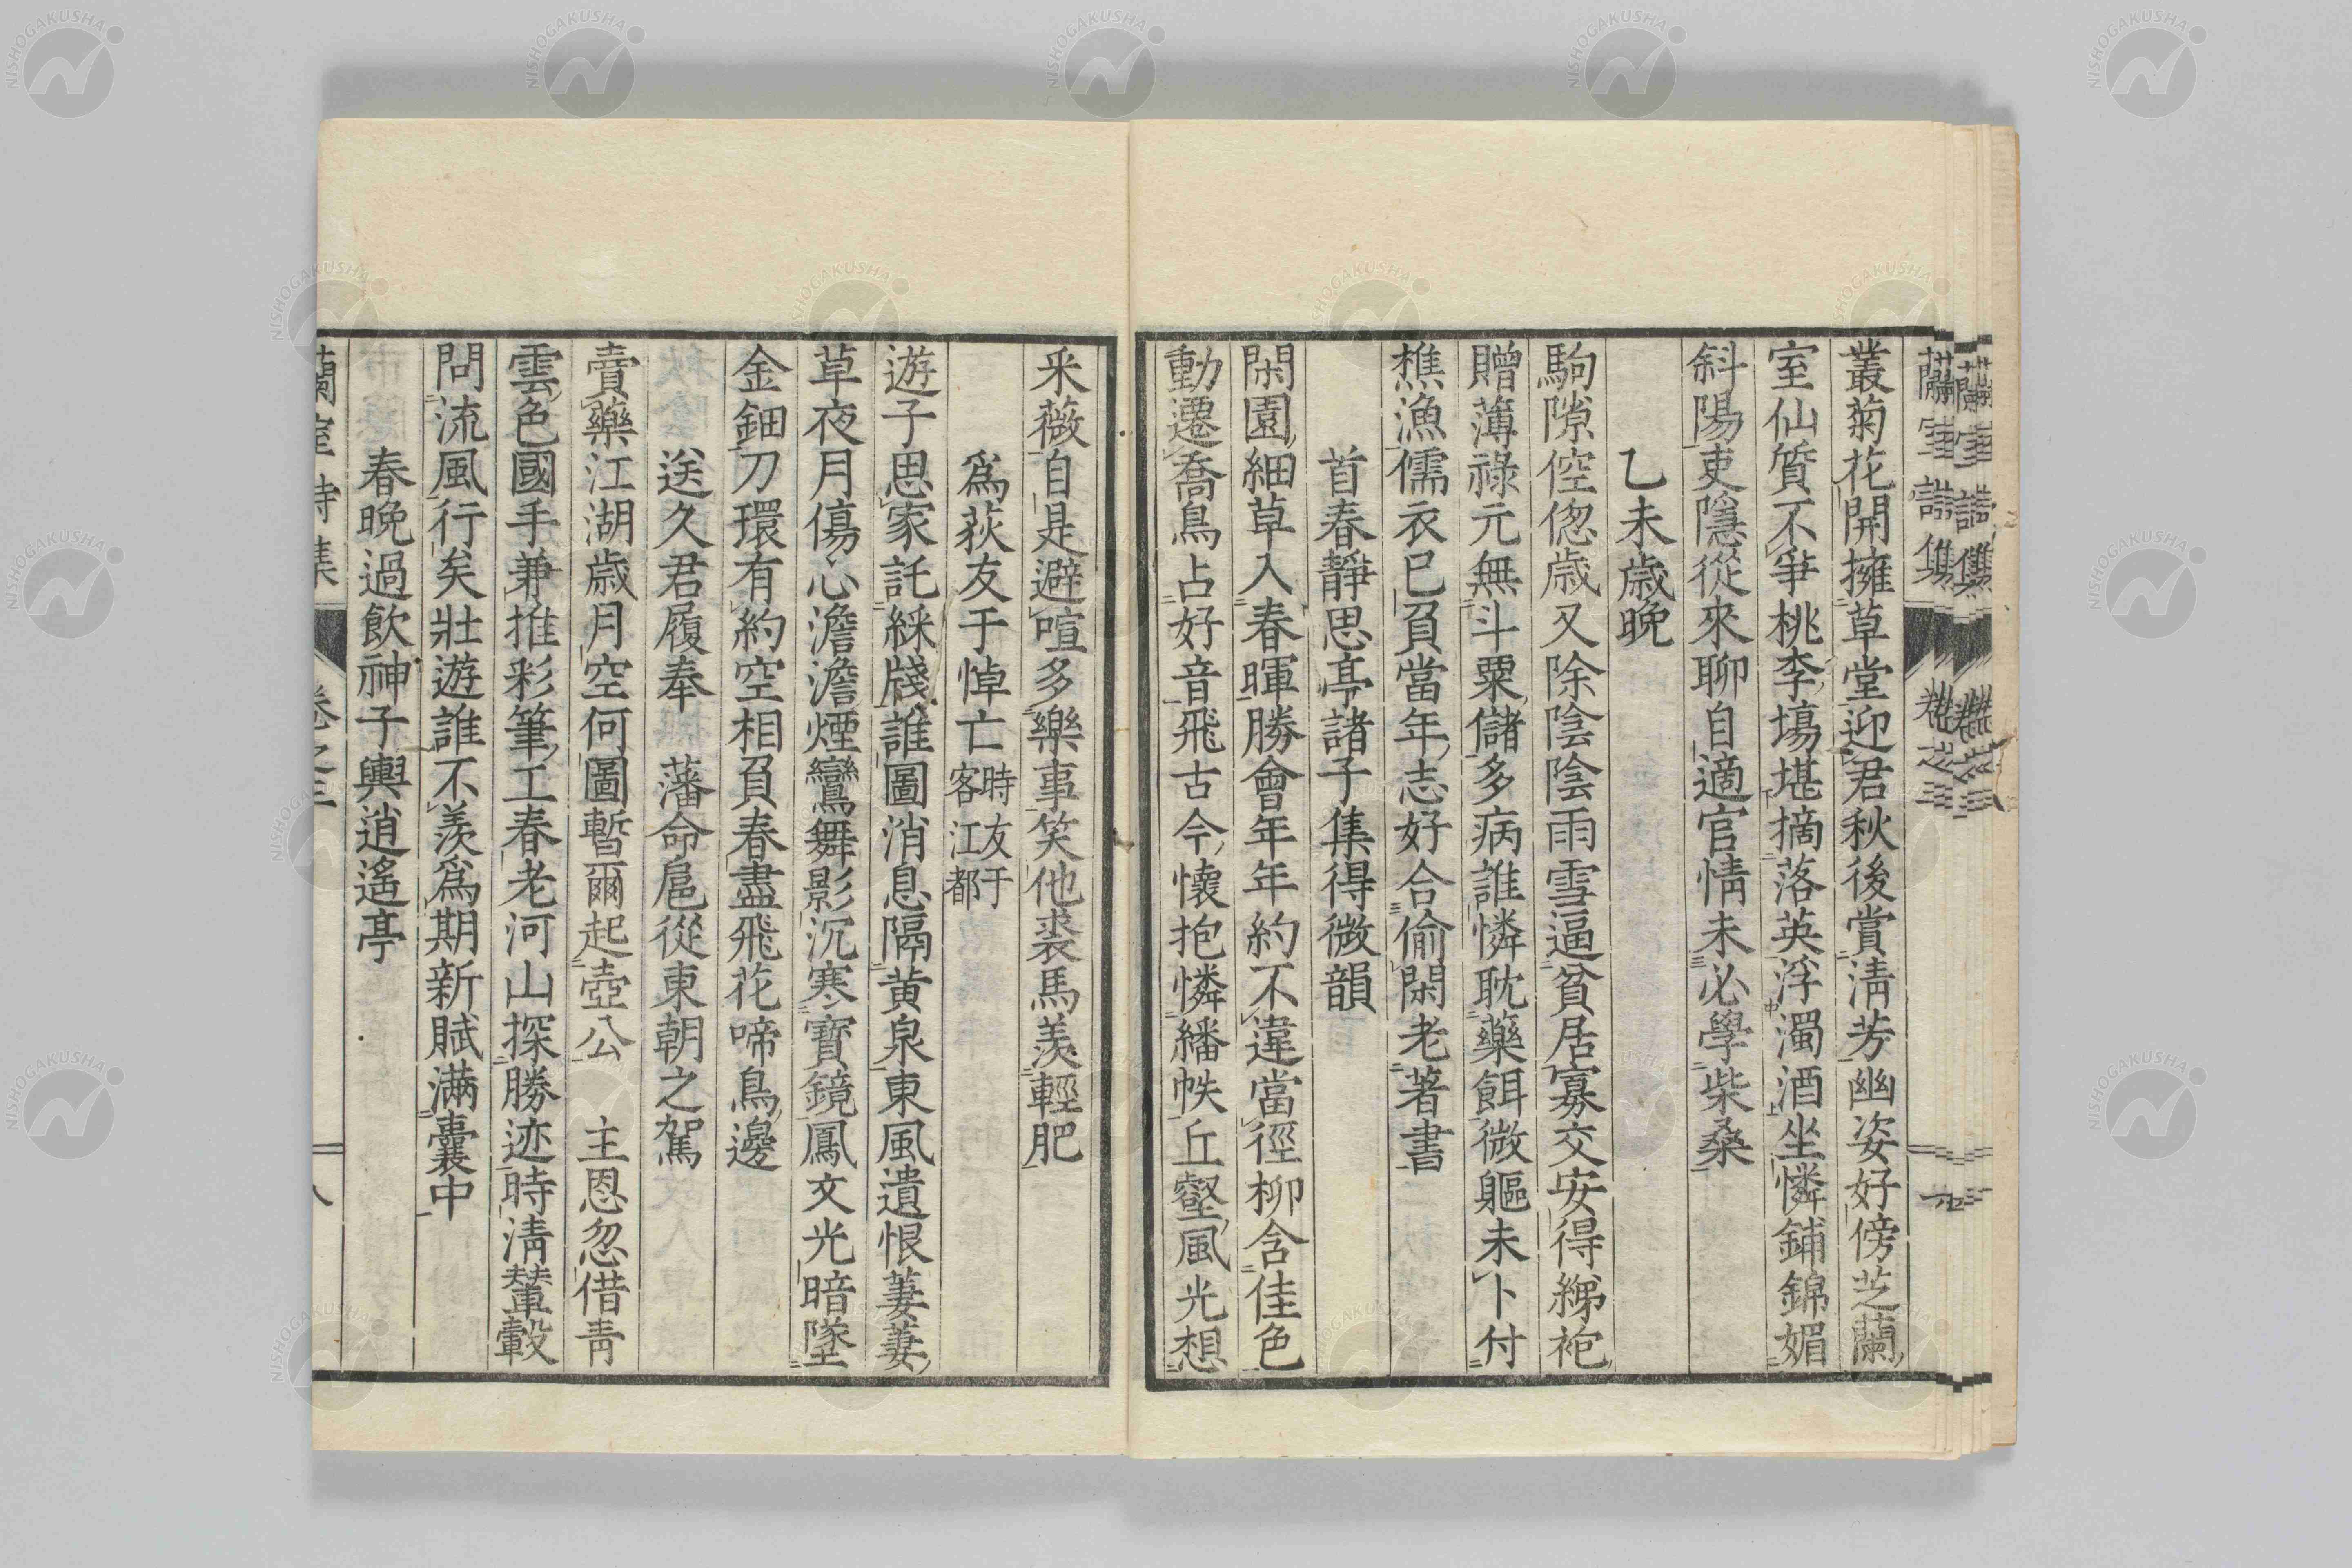 叢菊花開擁草堂迎君秋後賞清芳幽姿好傍芝蘭
室仙質不爭桃李塲堪摘落英浮濁酒坐憐鋪錦媚
斜陽吏隱從來聊自適官情未必學柴桑
乙未歳晩
駒隙倥偬歳又除陰陰雨雪逼貧居寡交安得綈袍
贈薄祿元無斗粟儲多病誰憐耽藥餌微軀未卜付
樵漁儒衣已負當年志好合偷閑老著書
首春靜思亭諸子集得微韻
閑園細草入春暉勝會年年約不違當徑柳含佳色
動遷喬鳥占好音飛古今懷抱憐繙帙丘壑風光想
采薇自是避喧多樂事笑他裘馬羨輕肥
爲荻友于悼亡
時友于
客江都
遊子思家託綵牋誰圖消息隔黄泉東風遺恨萋萋
草夜月傷心澹澹煙鸞舞影沉寒寶鏡鳳文光暗墜
金鈿刀環有約空相負春盡飛花啼鳥邊
送久君履奉 藩命扈從東朝之駕
賣藥江湖歳月空何圖暫爾起壺公 主恩忽借靑
雲色國手兼推彩筆工春老河山探勝迹時清輦轂
問流風行矣壯遊誰不羨爲期新賦滿囊中
春晩過飲神子輿逍遙亭
蘭室詩集 卷之三 八
NISHOGAKUSHA